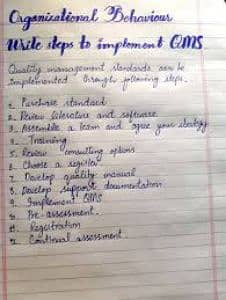 Organizational Behaviour
Write steps to implement QMS
Quality management standards can be
Implemented through following steps.
1. Purchase standard
2. Review literature and software
3. Assemble a team and agree your strategy
4. Training
5. Review consulting options
6. Choose a register
7. Develop quality manual
8. Develop support documentation
9. Implement QMS
10. Pre-assessment.
11. Registration
12. Continual assessment